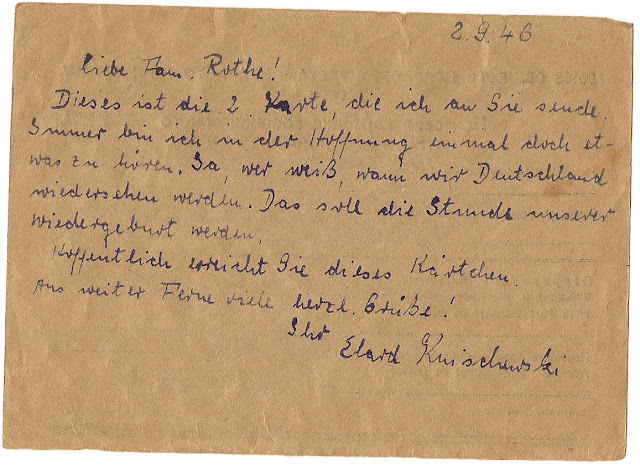 2.9.46
Liebe Fam. Rothe!
Dieses ist die 2. Karte, die ich an Sie sende.
Immer bin ich in der Hoffnung einmal doch et-
was zu hören. Ja, wer weiß, wann wir Deutschland
wiedersehen werden. Das soll die Stunde unserer
wiedergeburt werden.
Hoffentlich erreicht Sie dieses Kärtchen.
Aus weiter Ferne viele herzl. Grüße!
Ihr
Elard Knischewski